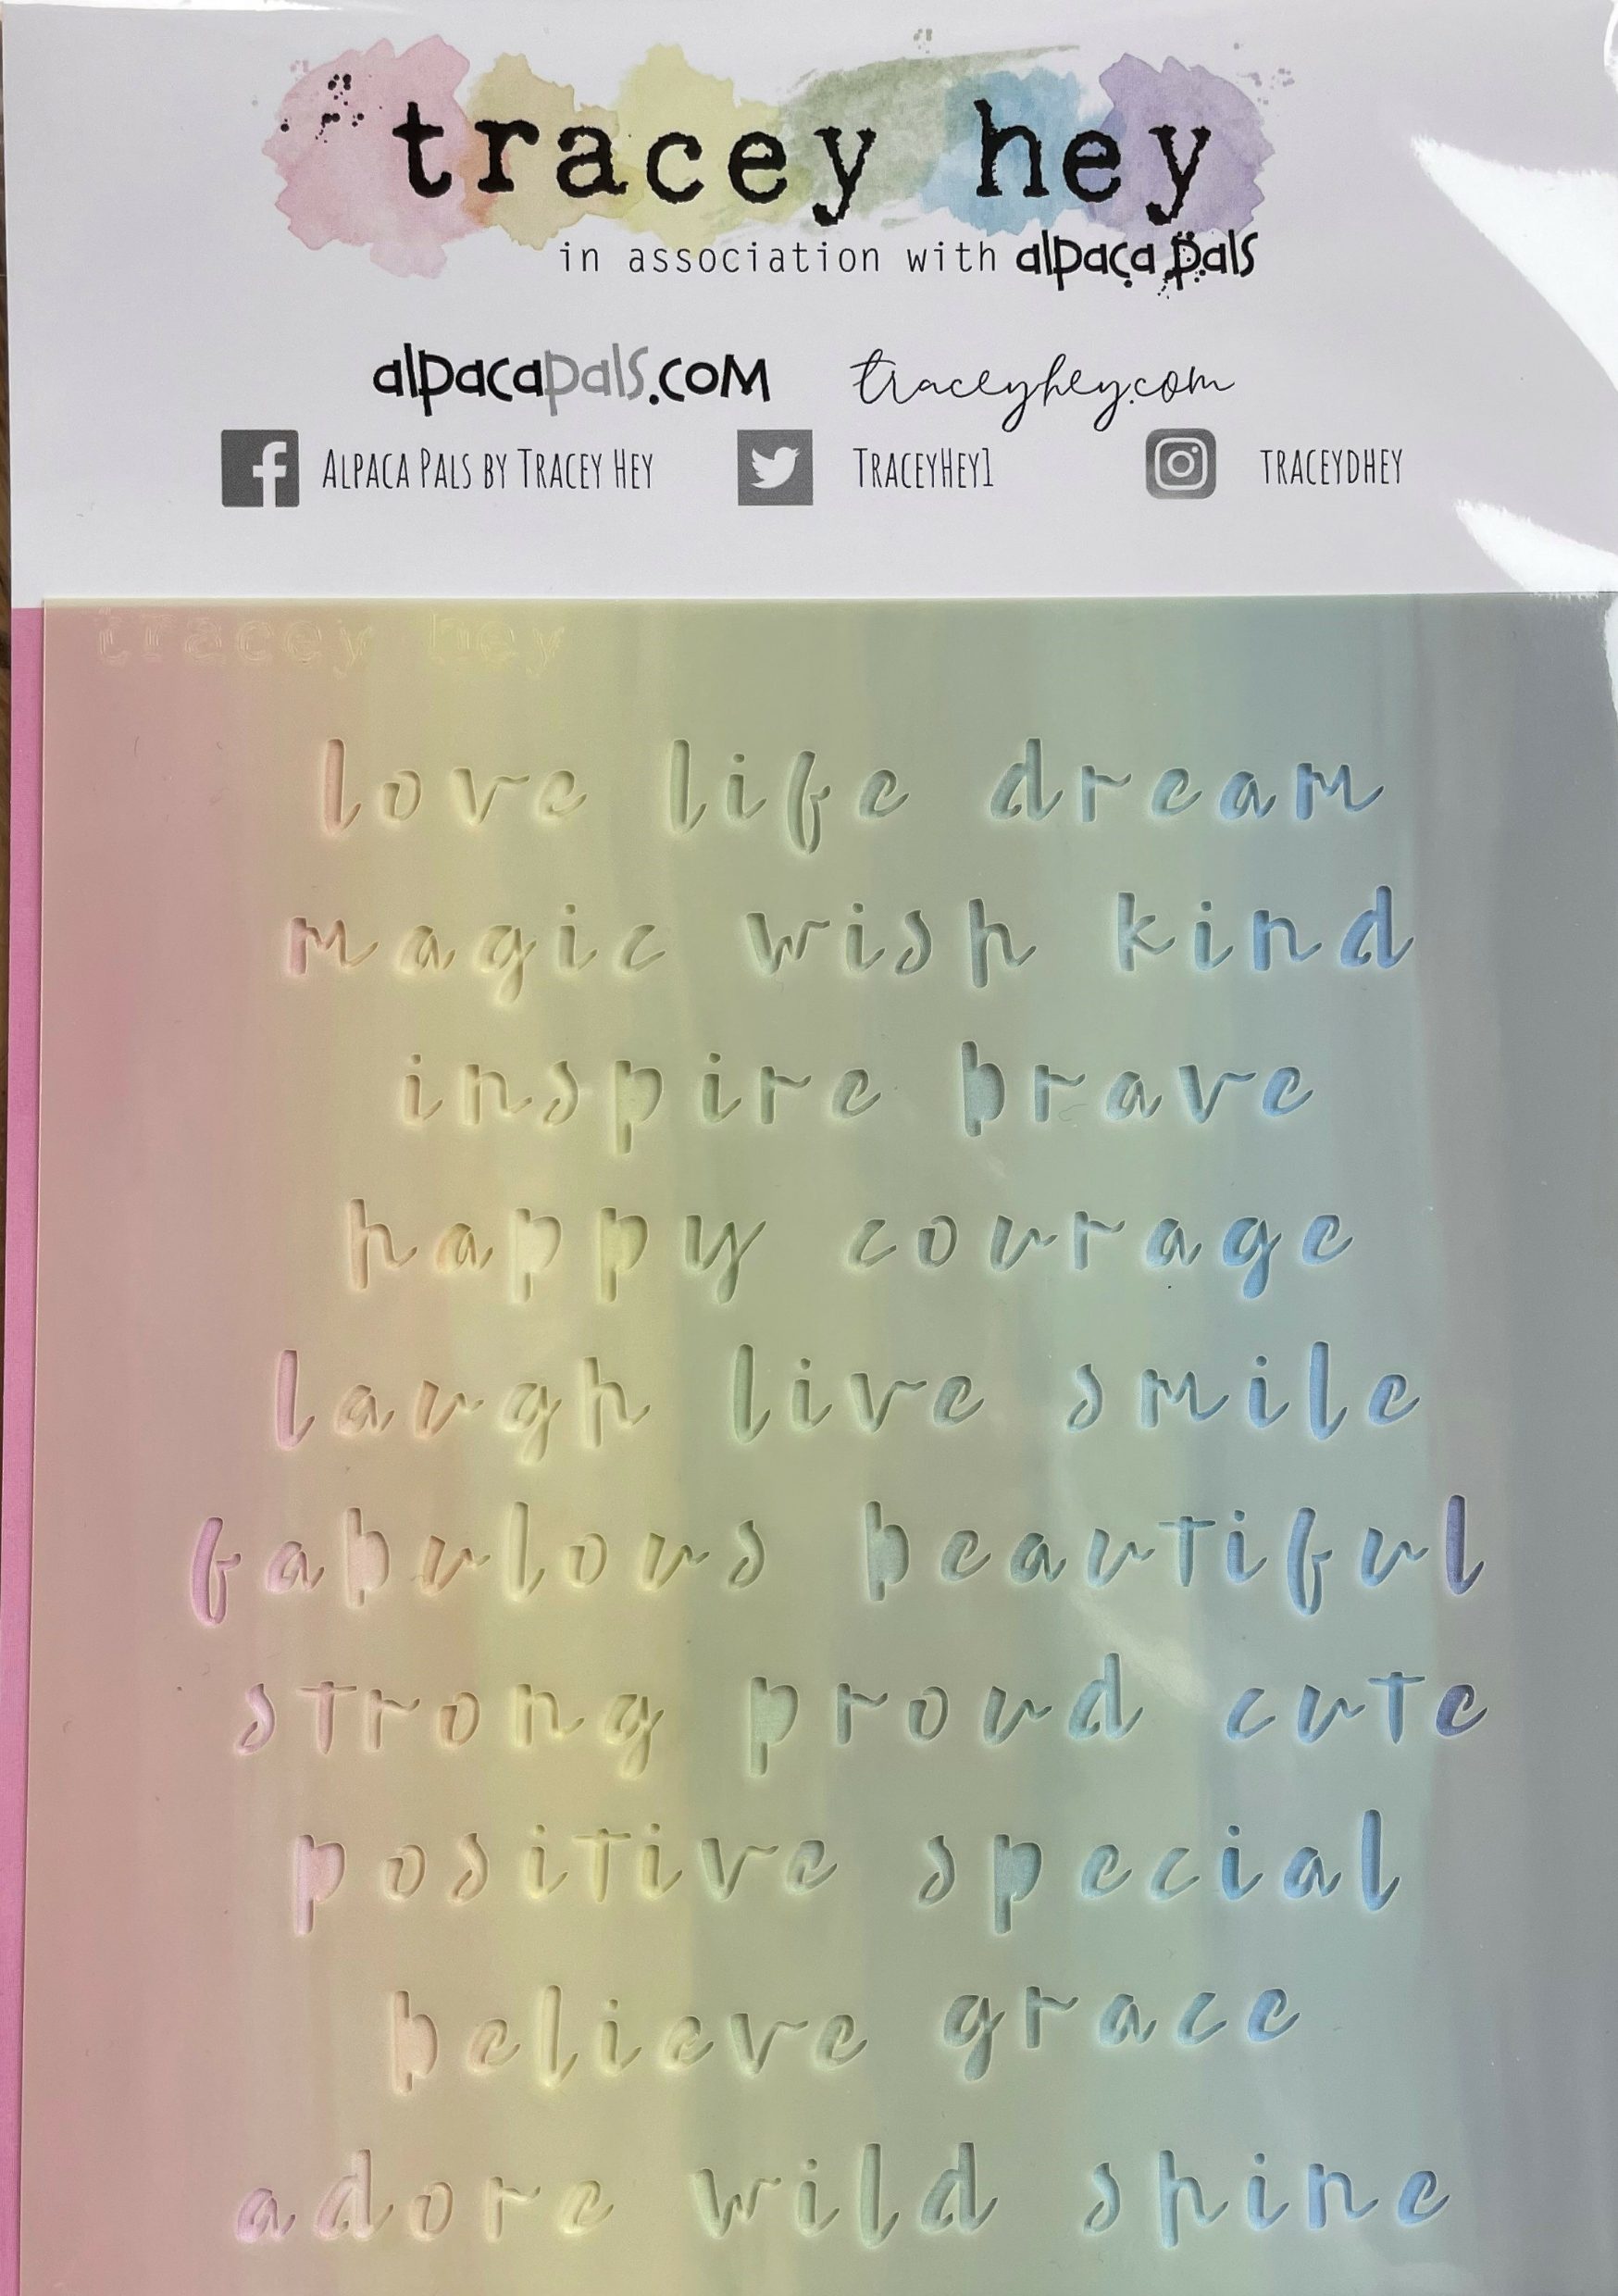 tracey hey
in association with alpaca pals
alpacapals.com traceyhey.com
Alpaca Pals by Tracey Hey TraceyHey1 traceydhey
tracey hey
love life dream
magic wish kind
inspire brave
happy courage
laugh live smile
fabulous beautiful
strong proud cute
positive special
believe grace
adore wild shine